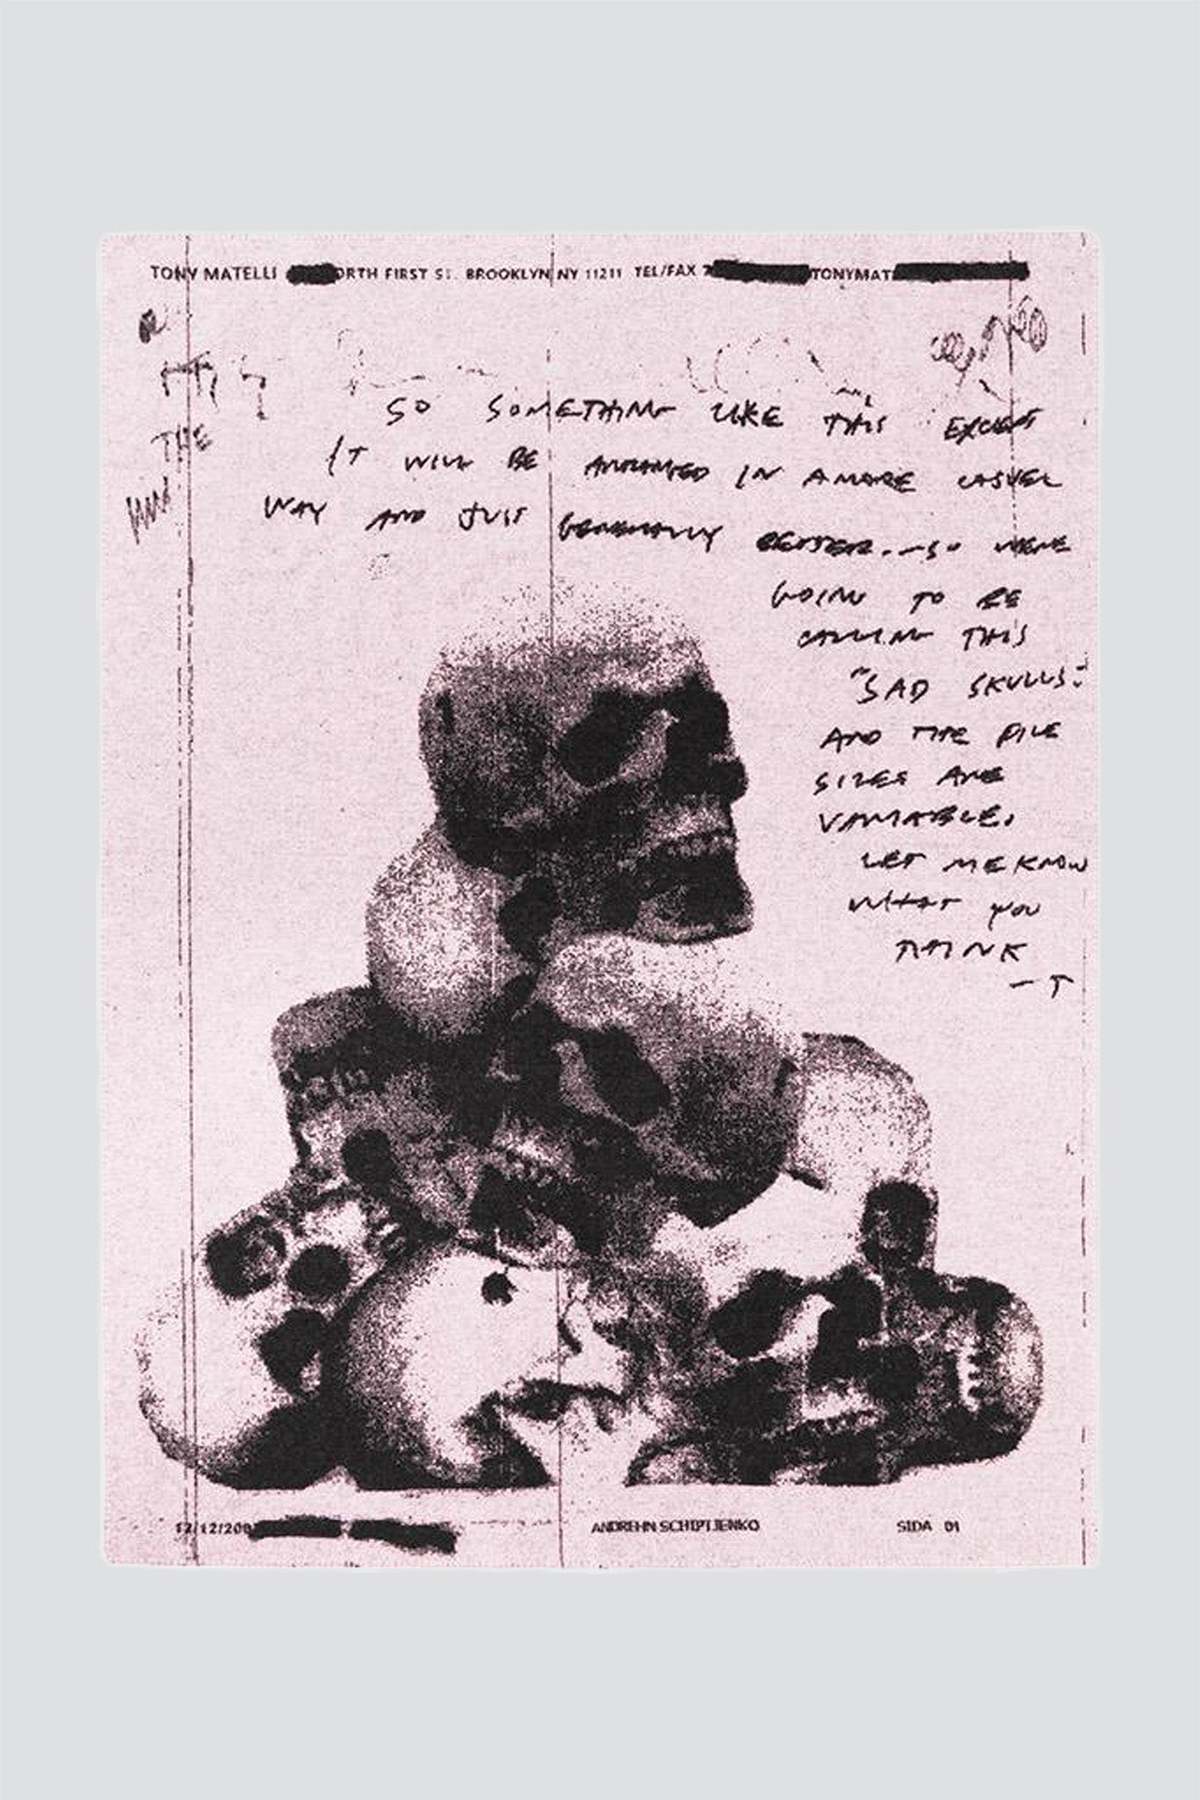 TONY MATELLI ORTH FIRST ST. BROOKLYN NY 11211 TEL/FAX TONYMAT
THE
SO SOMETHING LIKE THIS EXCEPT
IT WILL BE ARRANGED IN A MORE CASUEL
WAY AND JUST GENERALLY BETTER. - SO WERE
GOING TO BE
CALLING THIS
"SAD SKULLS."
AND THE PILE
SIZES ARE
VARIABLE.
LET ME KNOW
WHAT YOU
THINK
- T
12/12/200 ANDREHN SCHIPTJENKO SIDA 01